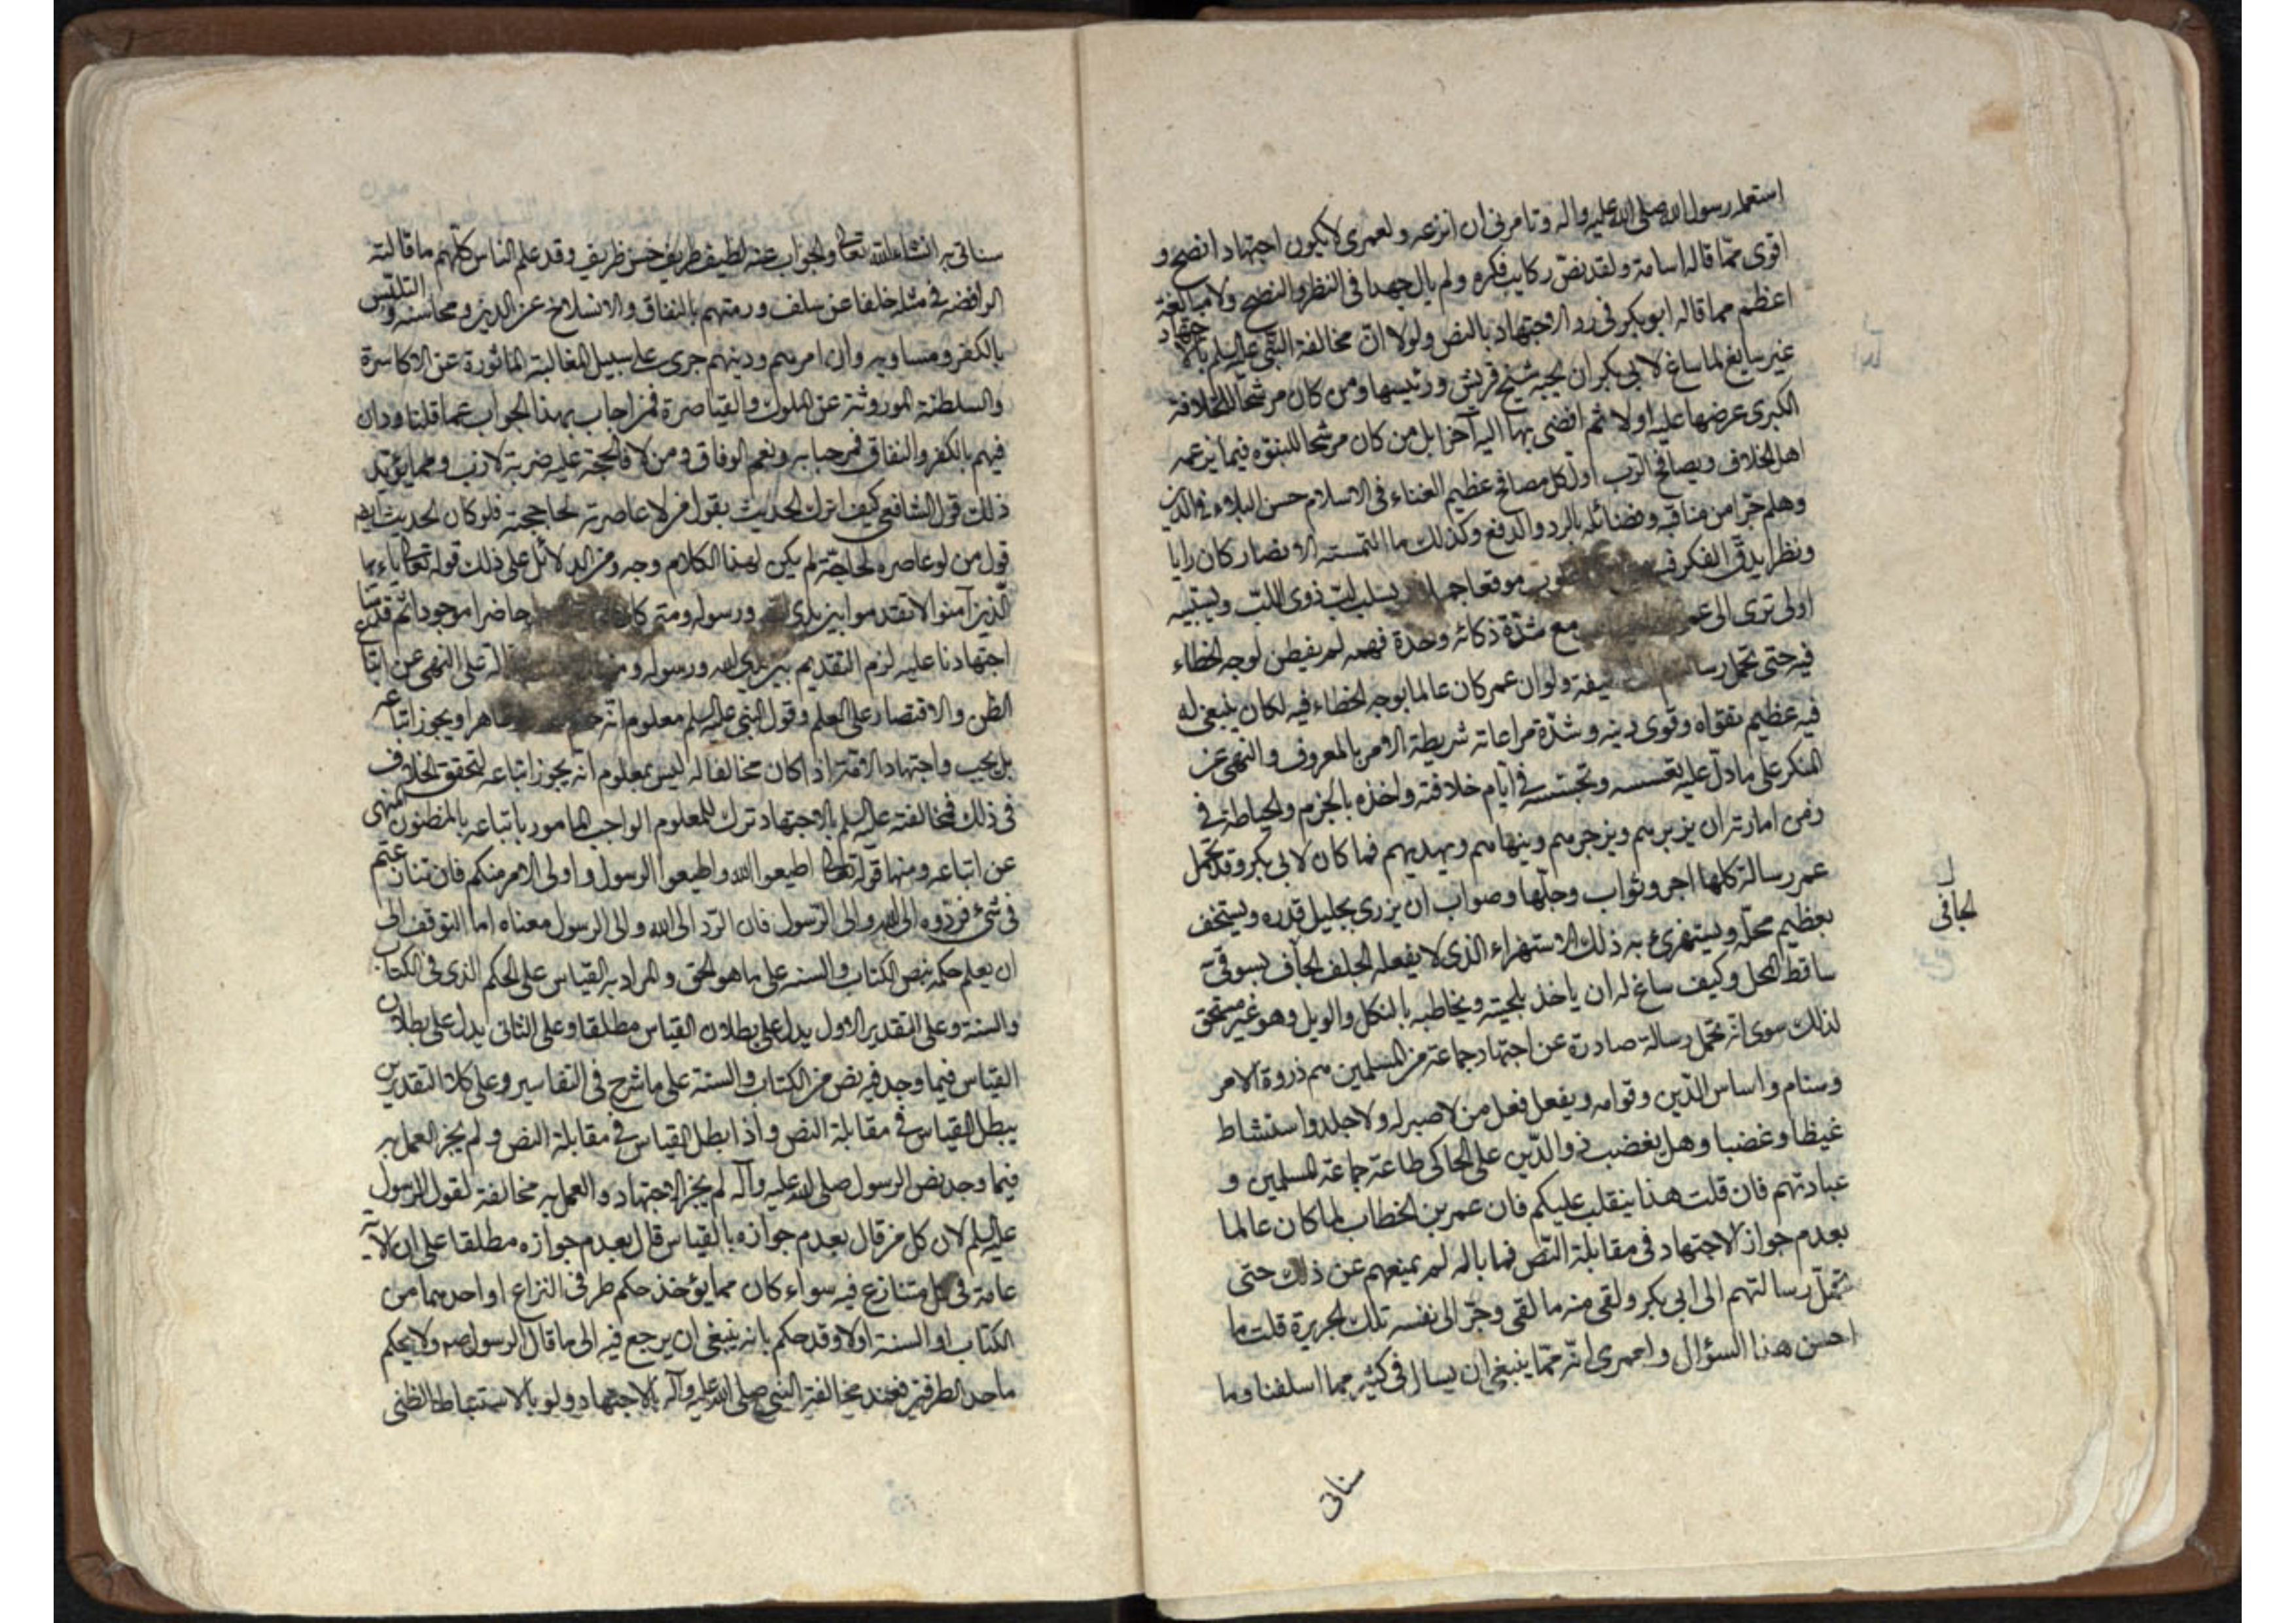 استعمله رسول الله صلى الله عليه واله وتامرنى ان انزعه ولعمرى لا يكون اجتهاد انصح و
اقوى مما قاله اسامة ولقد نص ركايب فكره ولم يال جهدا فى النظر والنصح ولا مبالغة
اعظم مما قاله ابو بكر فى رد الاجتهاد بالنص ولولا ان مخالفة النبى عليه السلم بالاجتهاد
غير سايغ لما ساغ لابى بكر ان يجيبه شيخ قريش ورئيسها ومن كان مرشحا للخلافة
الكبرى عرضها عليه اولا ثم افضى بها اليه آخرا بل من كان مرشحا للنبوه فيما يزعمه
اهل الخلاف ويصافح الرب اول كل مصافح عظيم الغناء فى الاسلام حسن البلاء فى الدين
وهلم جرا من مناقبه وفضائله بالرد والدفع وكذلك ما التمسته الانصار كان رايا
ونظرا يدق الفكر موقعا يسلب لب ذوى اللب ويستبيه
اولى ترى الى مع شدة ذكائه وحدة فهمه لم يفطن لوجه الخطاء
فيه حتى تحمل ولو ان عمر كان عالما بوجه الخطاء فيه لكان ينبغى له
فيه عظيم تقواه وقوى دينه وشدة مراعاته شريطة الامر بالمعروف والنهى عن
المنكر على ما دل عليه تعسسه وتجسسه فى ايام خلافته واخذه بالحزم والحياطة فى
زمن امارته ان يزبرهم ويزجرهم وينهاهم ويهديهم فما كان لابى بكر وقد تحمل
عمر رسالة كلها اجر وثواب وجلها وصواب ان يزرى بجليل قدره ويستخف
بعظيم محله ويستهزئ به ذلك الاستهزاء الذى لا يفعله الجلف الجاف بسوقى
ساقط المحل وكيف ساغ له ان ياخذ بلحيته ويخاطبه بالثكل والويل وهو غير مستحق
لذلك سوى انه تحمل رسالة صادرة عن اجتهاد جماعة من المسلمين هم ذروة الامر
وسنام واساس الدين وقوامه ويفعل فعل من لا صبر له ولا جلد واستشاط
غيظا وغضبا وهل يغضب ذو الدين على الحاكى طاعة جماعة المسلمين و
عبادتهم فان قلت هذا ينقلب عليكم فان عمر بن الخطاب لما كان عالما
بعدم جواز الاجتهاد فى مقابلة النص فما باله لم يمنعهم عن ذلك حتى
تحمل رسالتهم الى ابى بكر ولقى منه ما لقى وجر الى نفسه تلك الجريرة قلت ما
احسن هذا السؤال ولعمرى انه مما ينبغى ان يسال فى كثير مما اسلفنا وما
الجافى
سناتى
سناتى به انشاء الله تعالى والجواب عنه لطيف طريف حسن ظريف وقد علم الناس كلهم ما قالته
الرافضه فى مثله خلفا عن سلف ورمتهم بالنفاق والانسلاخ عن الدين ومحاسنه والتلبس
بالكفر ومساويه وان امرهم ودينهم جرى على سبيل المغالبة الماثورة عن الاكاسرة
والسلطنة الموروثة عن الملوك والقياصرة فمن اجاب بهذا الجواب عما قلنا ودان
فيهم بالكفر والنفاق فمرحبا به ونعم الوفاق ومن لا فالحجة عليه ضربة لازب ومما يؤيد
ذلك قول الشافعى كيف اترك الحديث بقول من لو عاصرته لحاججته فلو كان الحديث ايضا
قول من لو عاصره لحاجته لم يكن لهذا الكلام وجه ومن الدلائل على ذلك قوله تعالى ياءيها
الذين آمنوا لا تقدموا بين يدى الله ورسوله ومتى كان حاضرا موجودا ثم قدمنا
اجتهادنا عليه لزم التقديم بين يدى الله ورسوله على النهى عن اتباع
الظن والاقتصار على العلم وقول النبى عليه السلم معلوم انه ظاهرا ويجوز اتباعه
بل يجب واجتهاد الامة اذا كان مخالفا له ليس بمعلوم انه يجوز اتباعه لتحقق الخلاف
فى ذلك فمخالفته عليه السلم بالاجتهاد ترك للمعلوم الواجب المامور باتباعه بالمظنون المنهى
عن اتباعه ومنها قوله تعالى اطيعوا الله واطيعوا الرسول واولى الامر منكم فان تنازعتم
فى شئ فردوه الى الله والى الرسول فان الرد الى الله والى الرسول معناه اما التوقف الى
ان يعلم حكمه بنص الكتاب والسنه على ما هو الحق والمراد به القياس على الحكم الذى فى الكتاب
والسنة وعلى التقدير الاول يدل على بطلان القياس مطلقا وعلى الثانى يدل على بطلان
القياس فيما وجد فيه نص من الكتاب والسنة على ما شرح فى التفاسير وعلى كلا التقديرين
يبطل القياس فى مقابلة النص واذا بطل القياس فى مقابلة النص ولم يجز العمل به
فيما وجد نص الرسول صلى الله عليه وآله لم يجز الاجتهاد والعمل به مخالفة لقول الرسول
عليه السلم لان كل من قال بعدم جوازه بالقياس قال بعدم جوازه مطلقا على ان الآية
عامة فى كل متنازع فيه سواء كان مما يؤخذ حكم طرفى النزاع او احدهما من
الكتاب او السنة اولا وقد حكم بانه ينبغى ان يرجع فيه الى ما قال الرسول ص ولا يحكم
باحد الطرفين فعند مخالفة النبى صلى الله عليه وآله بالاجتهاد ولو بالاستنباط الظنى